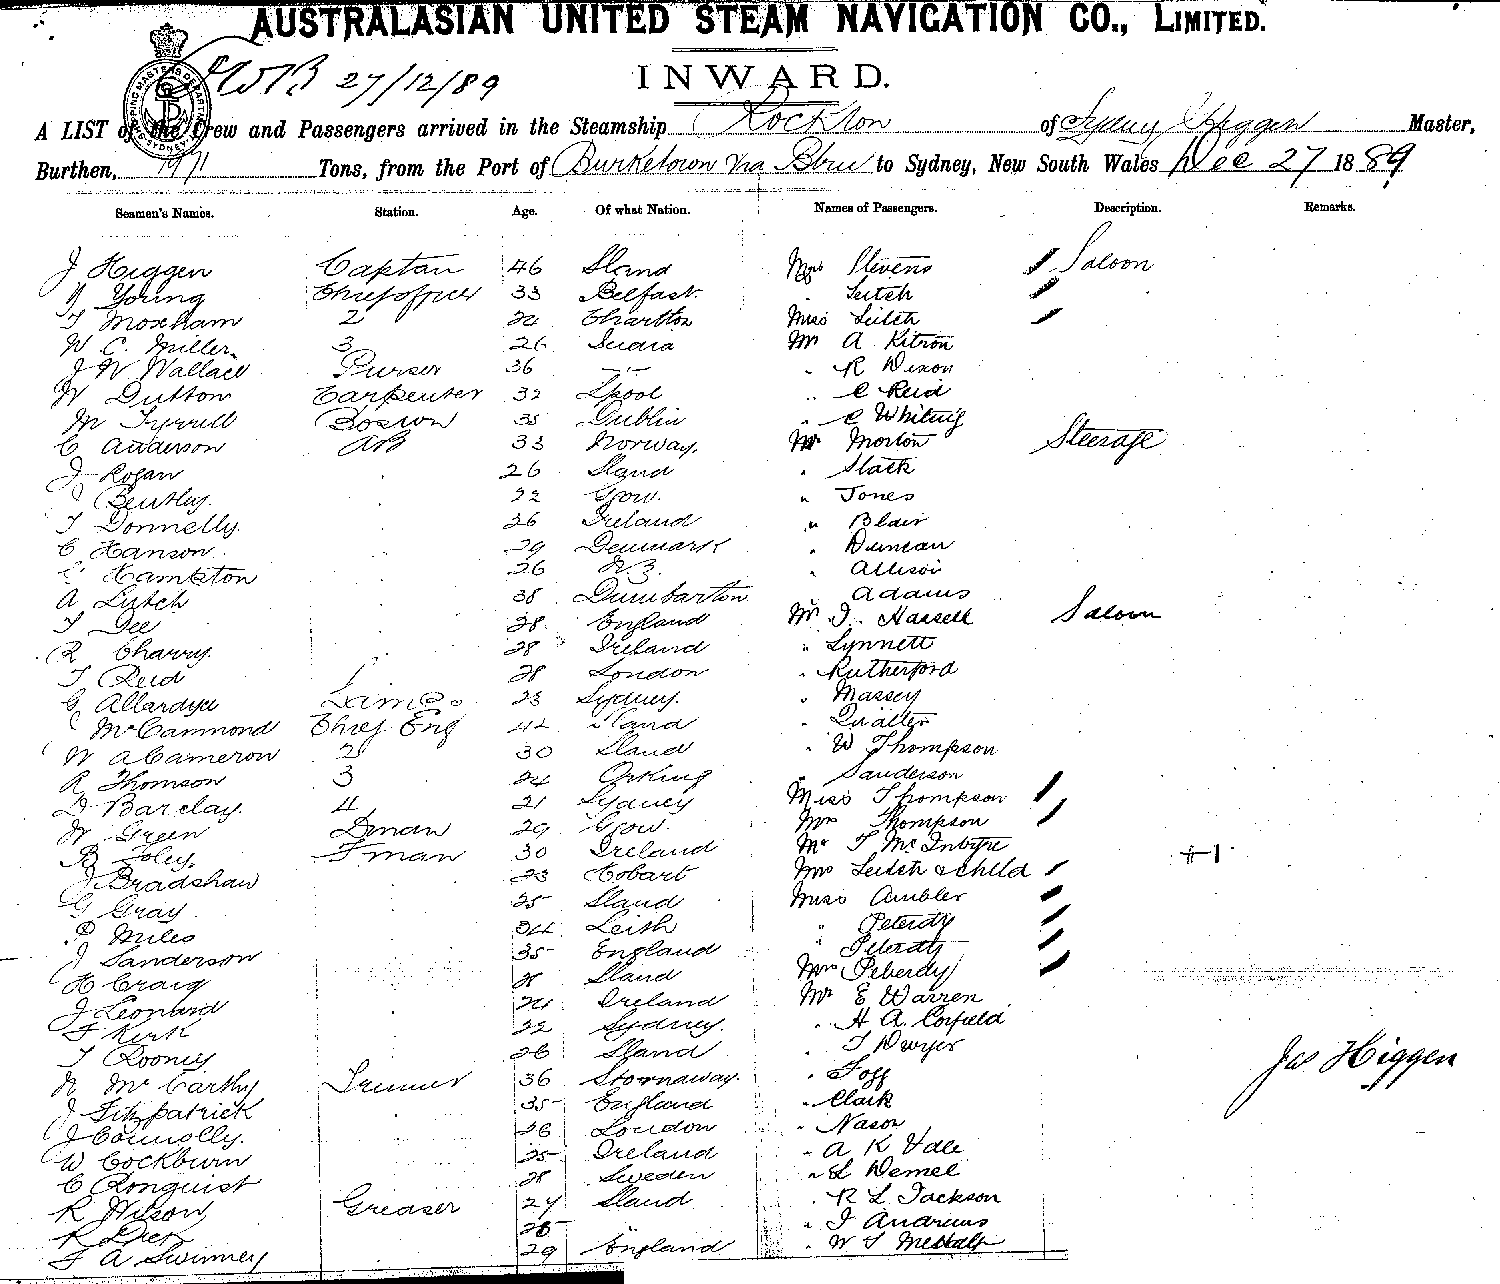 AUSTRALASIAN UNITED STEAM NAVIGATION CO., LIMITED.
27/12/89 INWARD.
A LIST of the Crew and Passengers arrived in the Steamship Rockton of Sydney Higgen Master,
Burthen, 1971 Tons, from the Port of Burketown via Bbne to Sydney, New South Wales Dec 27 1889
Seamen's Names. Station. Age. Of what Nation. Names of Passengers. Description. Remarks.
J Higgen Captan 46 Sland Mrs Stevens Saloon
Young Chief officer 33 Belfast. " Leitch
T Moxham 2 24 Charlton Miss Leitch
W C. Miller 3 26 India Mr A. Kitson
J W Wallace Purser 36 " R Dixon
W Dutton Carpenter 32 Lpool " C Reid
M Tyrrell Bosun 35 Dublin " C Whiting
C Anderson AB 33 Norway. Mr Morton Steerage
J Rogan 26 Sland " Slack
J Bentley. 22 Gow. " Jones
T Donnelly. 26 Ireland " Blair
C Hanson. 29 Denmark " Duncan
Hampton 26 N.Z. " Allison
A Leitch 38 Dumbarton " Adams
T Dee 28 England Mr J. Hassell Saloon
R Charry. 28 Ireland " Lynnett
T Reid 28 London " Rutherford
G Allardyce Lamps 23 Sydney. " Massey
McCammond Chief Eng 42 Sland " Qualter
W A Cameron 2 30 Sland " W Thompson
R Thomson 3 24 " Sanderson
D Barclay. 4 21 Sydney Miss Thompson
W Green Dman 29 Gow. Mrs Thompson
B Foley, Fman 30 Ireland Mr T McIntyre +1
J Bradshaw 23 Hobart Mrs Leitch & child
G Gray. 25 Sland Miss Ambler
P Miles 34 Leith " Peberdy
J Sanderson 35 England " Peberdy
H Craig 28 Sland Mrs Peberdy
J Leonard 24 Ireland Mr E Warren
F Kirk 22 Sydney. " H A. Corfield
T Rooney 26 Sland " T Dwyer
McCarthy Trimmer 36 Stornaway. " Fogg Jas Higgen
J Fitzpatrick 35 England " Clark
J Connolly. 26 London " Nason
W Cockburn 25 Ireland " A K Vale
C Ronquist 28 Sweden " L Demel
R Wilson Greaser 27 Sland " R L Jackson
R Dick 25 " J Andrews
F A Swinney 29 England " W T Metcalf